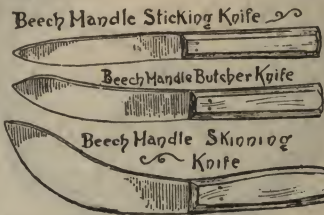 Beech Handle Sticking Knife
Beech Handle Butcher Knife
Beech Handle Skinning
Knife